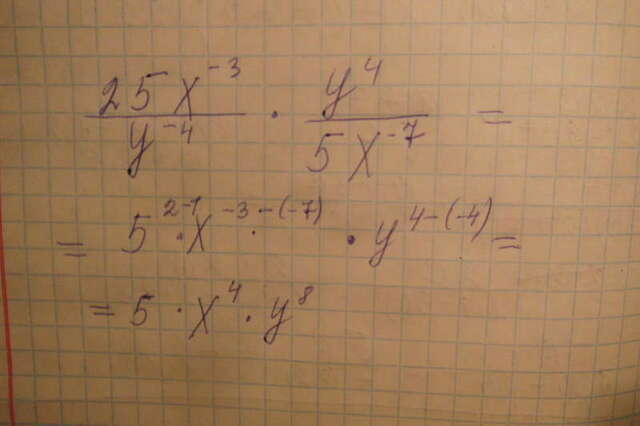 25x⁻³ / y⁻⁴ · y⁴ / 5x⁻⁷ =
= 5²⁻¹ · x⁻³⁻⁽⁻⁷⁾ · y⁴⁻⁽⁻⁴⁾ =
= 5 · x⁴ · y⁸